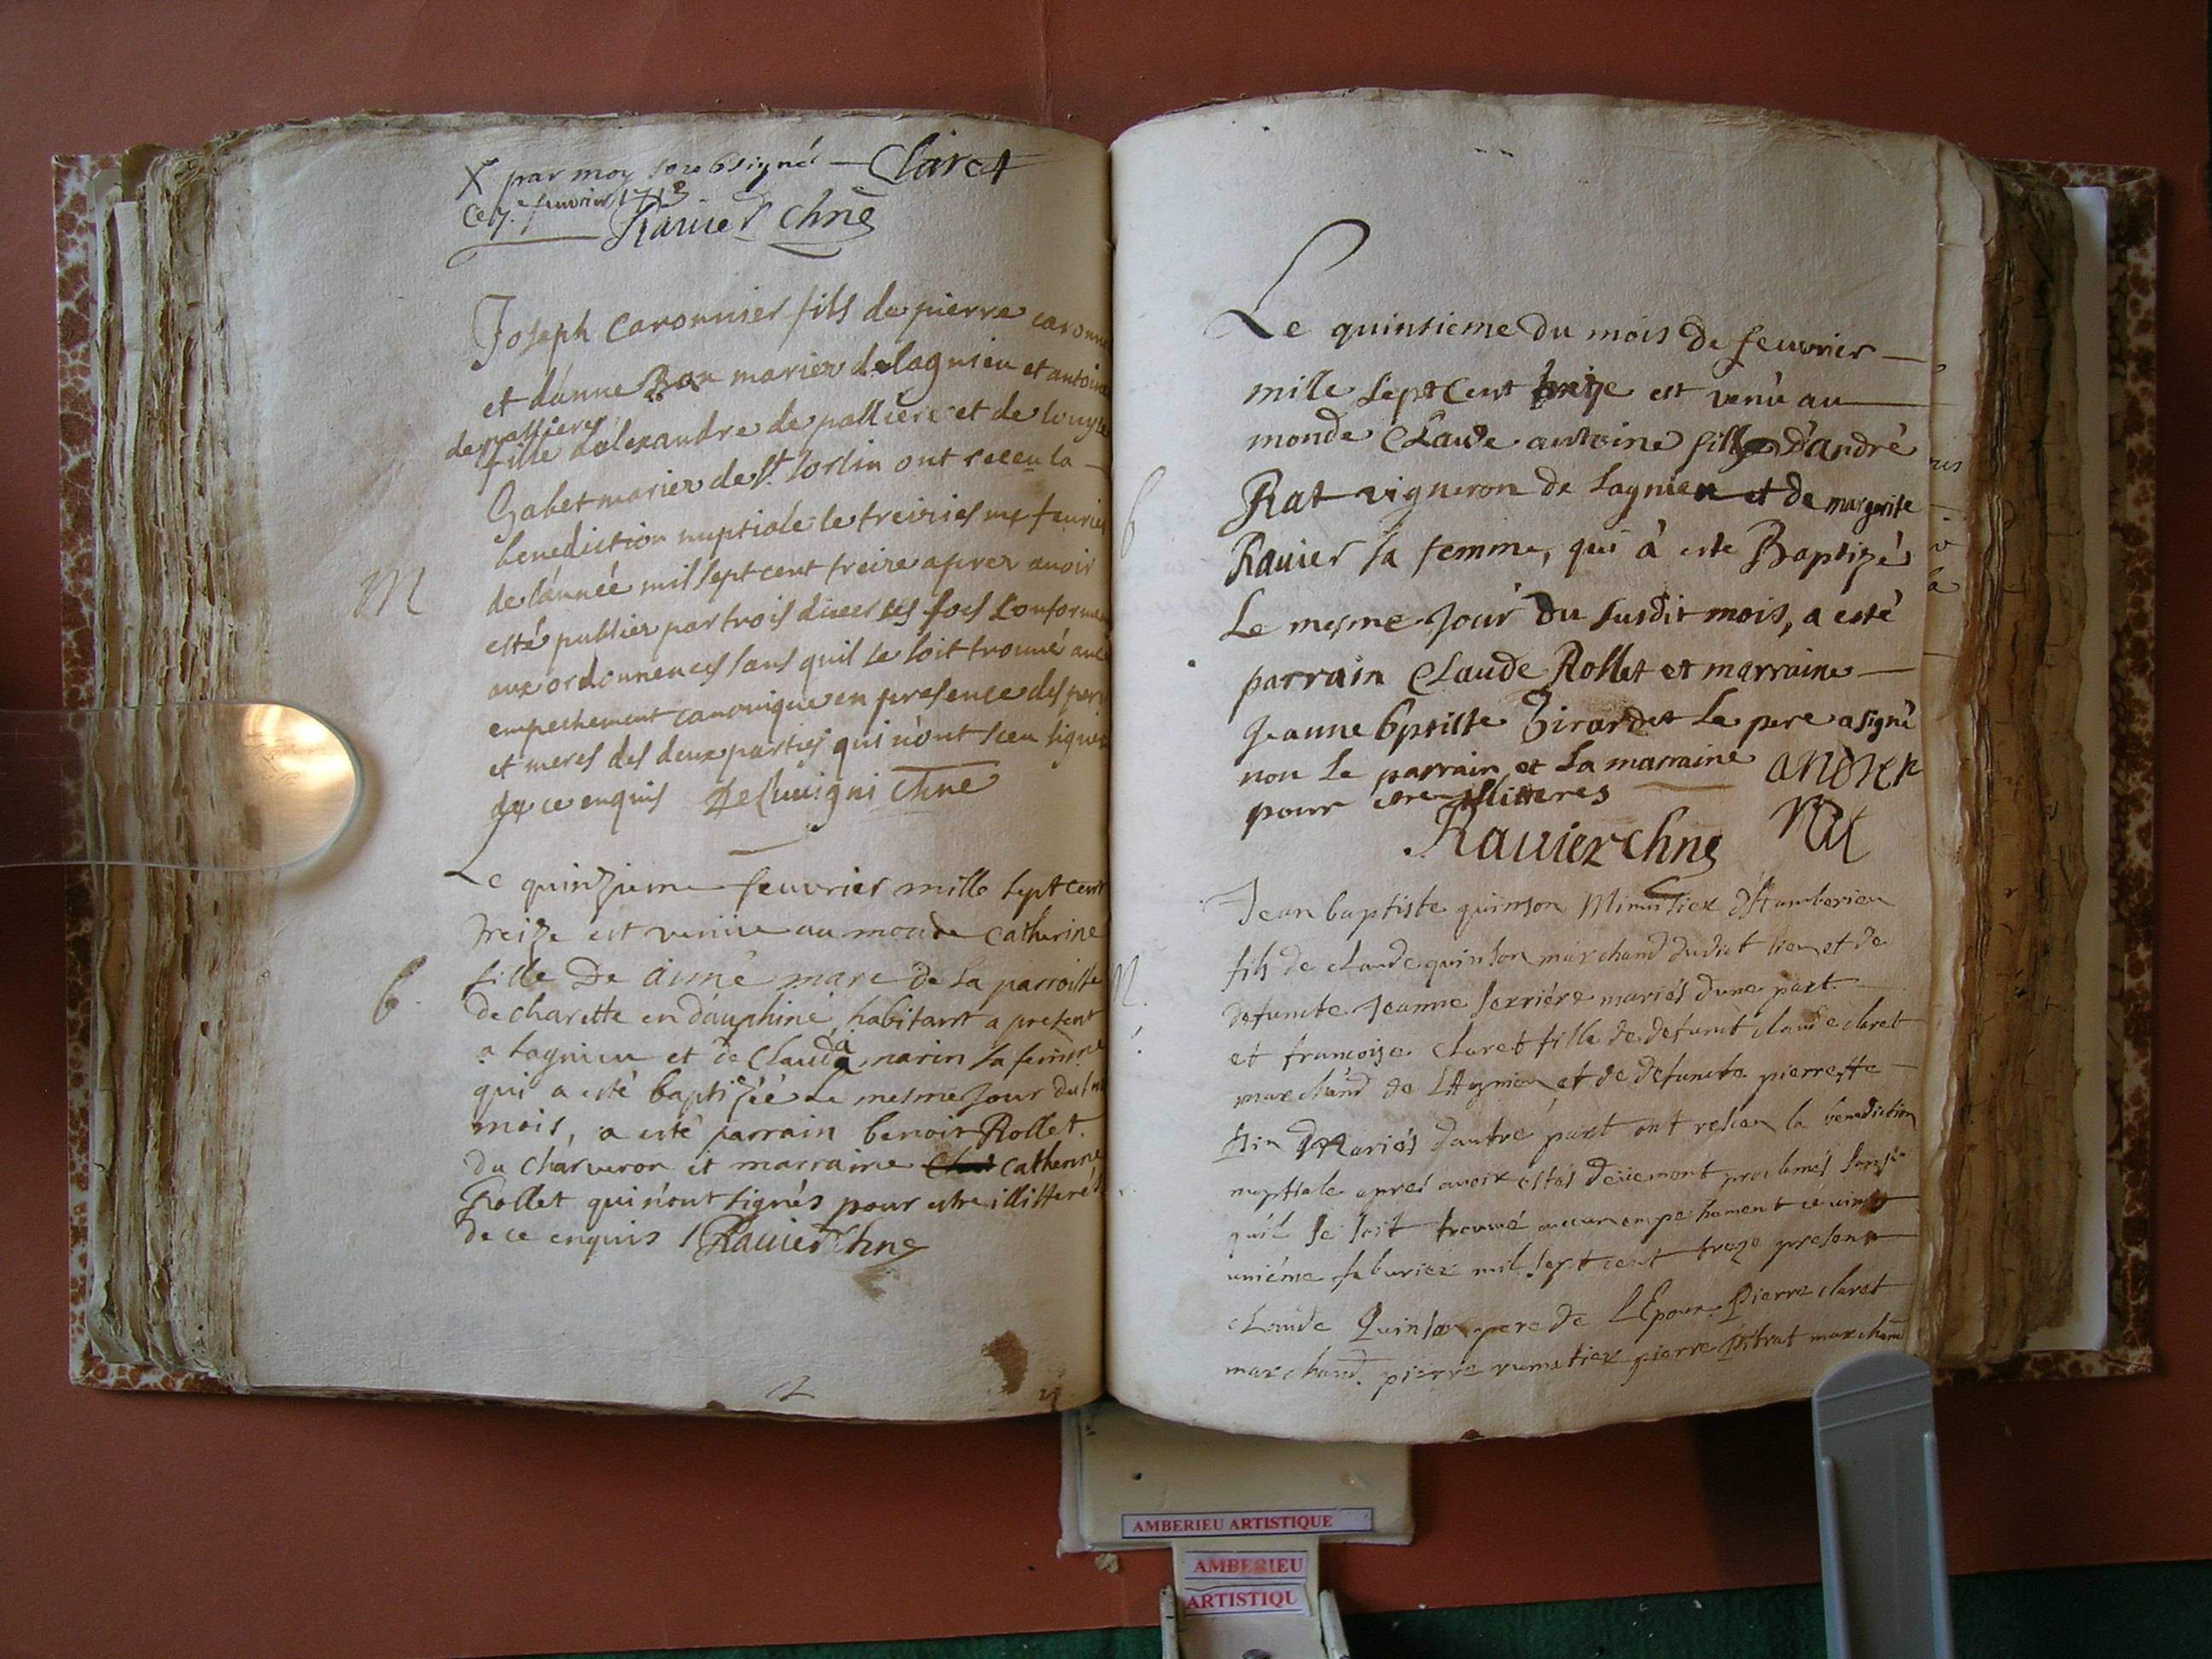 X par moy soubsigné — Claret
Ce 7.e feuvrier 1713
Ravier Chne
Joseph Caronnier fils de pierre caronn
et danne Bon mariez de lagnieu et antoin
de pallieres
fille dalexandre de palliere et de louyse
Gabet mariez de st Sorlin ont receu la
benediction nuptiale le treiziesme feurier
de lánneé mil sept cent treize aprez auoir
M
esté publiez par trois diverses fois Conforme
aux ordonnences sans quil se soit trouué auc
empechement canonique en presence des per
et meres des deux parties qui nónt sceu signer
de ce enquis Chne
Le quinzieme feuvrier mille sept cent
treize est veniie au monde Catherine
fille De aimé marc de la parroisse
b.
de charette en dauphiné, habitant a present
a Lagnieu et de Clauda marin sa femme
qui a esté baptizéé Le mesme Jour du
mois, a esté parrain benoit Rollet
du charveron et marraine Catherine
Rollet qui nónt signés pour estre illitteré
de ce enquis / Ravier Chne
Le quinsieme Du mois De feuvrier
mille Sept Cent treize est venú au
monde Claude antoine fils D'andré
Rat vigneron de Lagnieu et de margerite
b
Ravier sa femme, qui à este Baptizés
Le mesme Jour Du susdit mois, a esté
parrain Claude Rollet et marraine
Jeanne bptiste Girardet Le pere a signé
non Le parrain et La marraine ANDRER
pour illitteres
Ravier chne
Jean baptiste quinson D'Amberieu
fils de claude quinson marchand dudict lieu et de
defuncte Jeanne serriére mariés dune part
et francoize claret fille de defunct claude claret
marchand de LAgnieu et de defuncte pierrette
Mariés dautre part ont receu la benediction
nuptiale aprés avoir estés deüement proclamés sans
quil se soit trouvé aucun empechement ce vint
uniéme feburier mil sept cent treze present
claude Quinson pere de LEpoux pierre claret
marchand. pierre pierre pitrat marchand
AMBERIEU ARTISTIQUE
AMBERIEU
ARTISTIQU